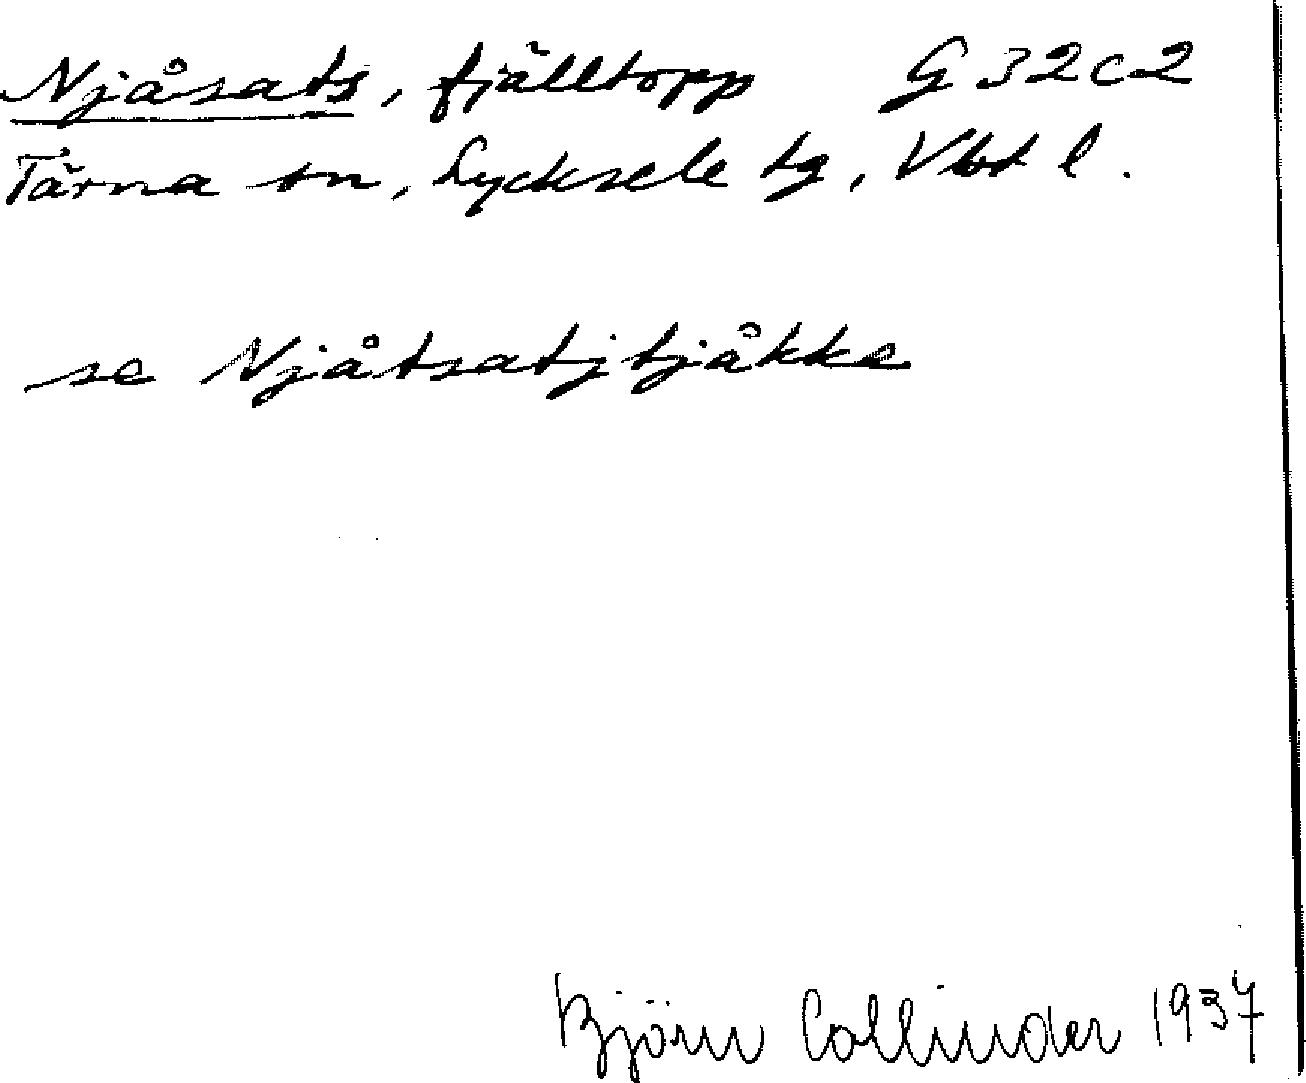 Njåsats, fjälltopp G 32 c 2
Tärna sn, Lycksele tg, Vbt l.
se Njåtsatjtjåkke
Björn Collinder 1937